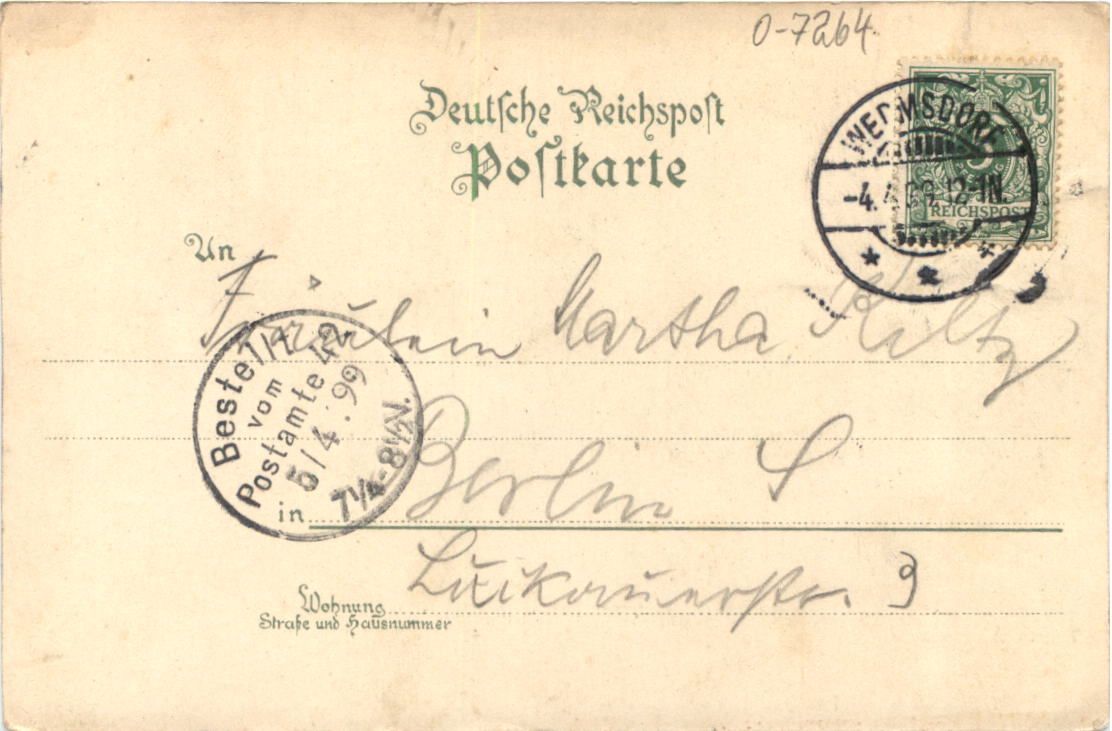 0-7264
Deutsche Reichspost
Postkarte
WERMSDORF
-4.4.99. 12-1N.
REICHSPOST
An
Fräulein Martha Kiltz
Bestellt
vom
Postamte 42
5/4.99
7¼-8½N.
Berlin S
in
Luckauerstr. 9
Wohnung
Straße und Hausnummer